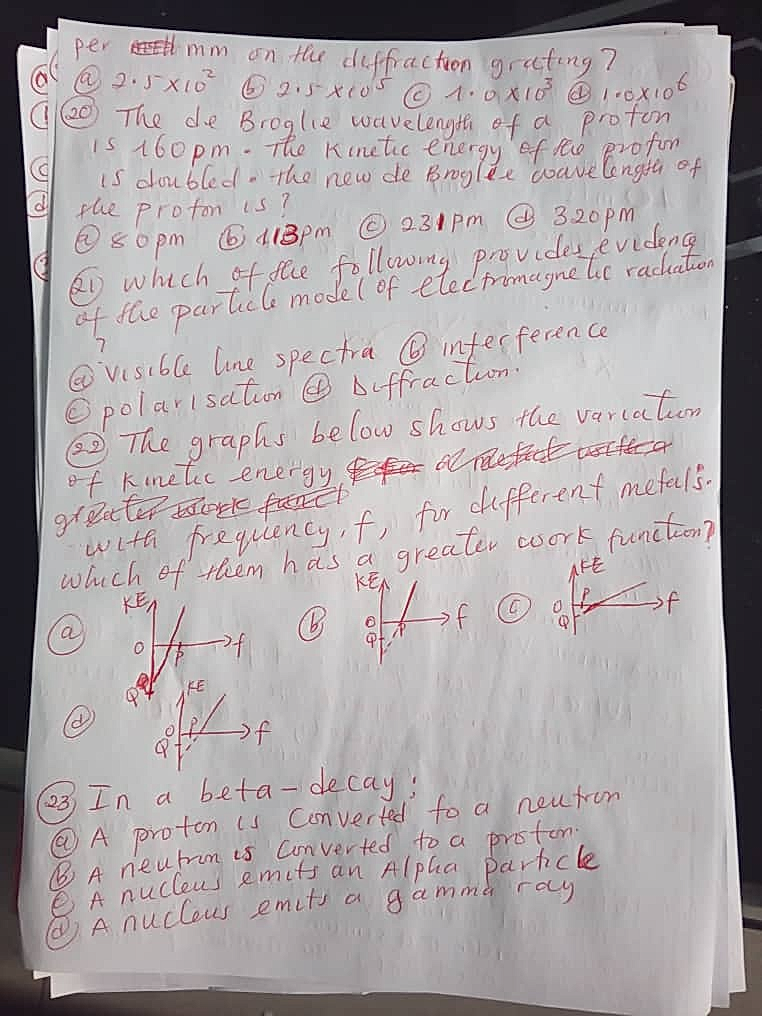 per mm on the diffraction grating?
ⓐ 2.5×10² ⓑ 2.5×10⁵ ⓒ 1.0×10³ ⓓ 1.0×10⁶
⑳ The de Broglie wavelength of a proton
is 160pm. The kinetic energy of the proton
is doubled. the new de Broglie wavelength of
the proton is?
ⓐ 80pm ⓑ 113pm ⓒ 231pm ⓓ 320pm
㉑ which of the following provides evidence
of the particle model of electromagnetic radiation
?
ⓐ visible line spectra ⓑ interference
ⓒ polarisation ⓓ Diffraction.
㉒ The graphs below shows the variation
of kinetic energy
greater work funct
with frequency, f, for different metals.
which of them has a greater work function?
ⓐ KE O P f Q
ⓑ KE O Q P f
ⓒ KE O Q P f
ⓓ KE O Q P f
㉓ In a beta-decay:
ⓐ A proton is converted to a neutron
ⓑ A neutron is converted to a proton.
ⓒ A nucleus emits an Alpha particle
ⓓ A nucleus emits a gamma ray